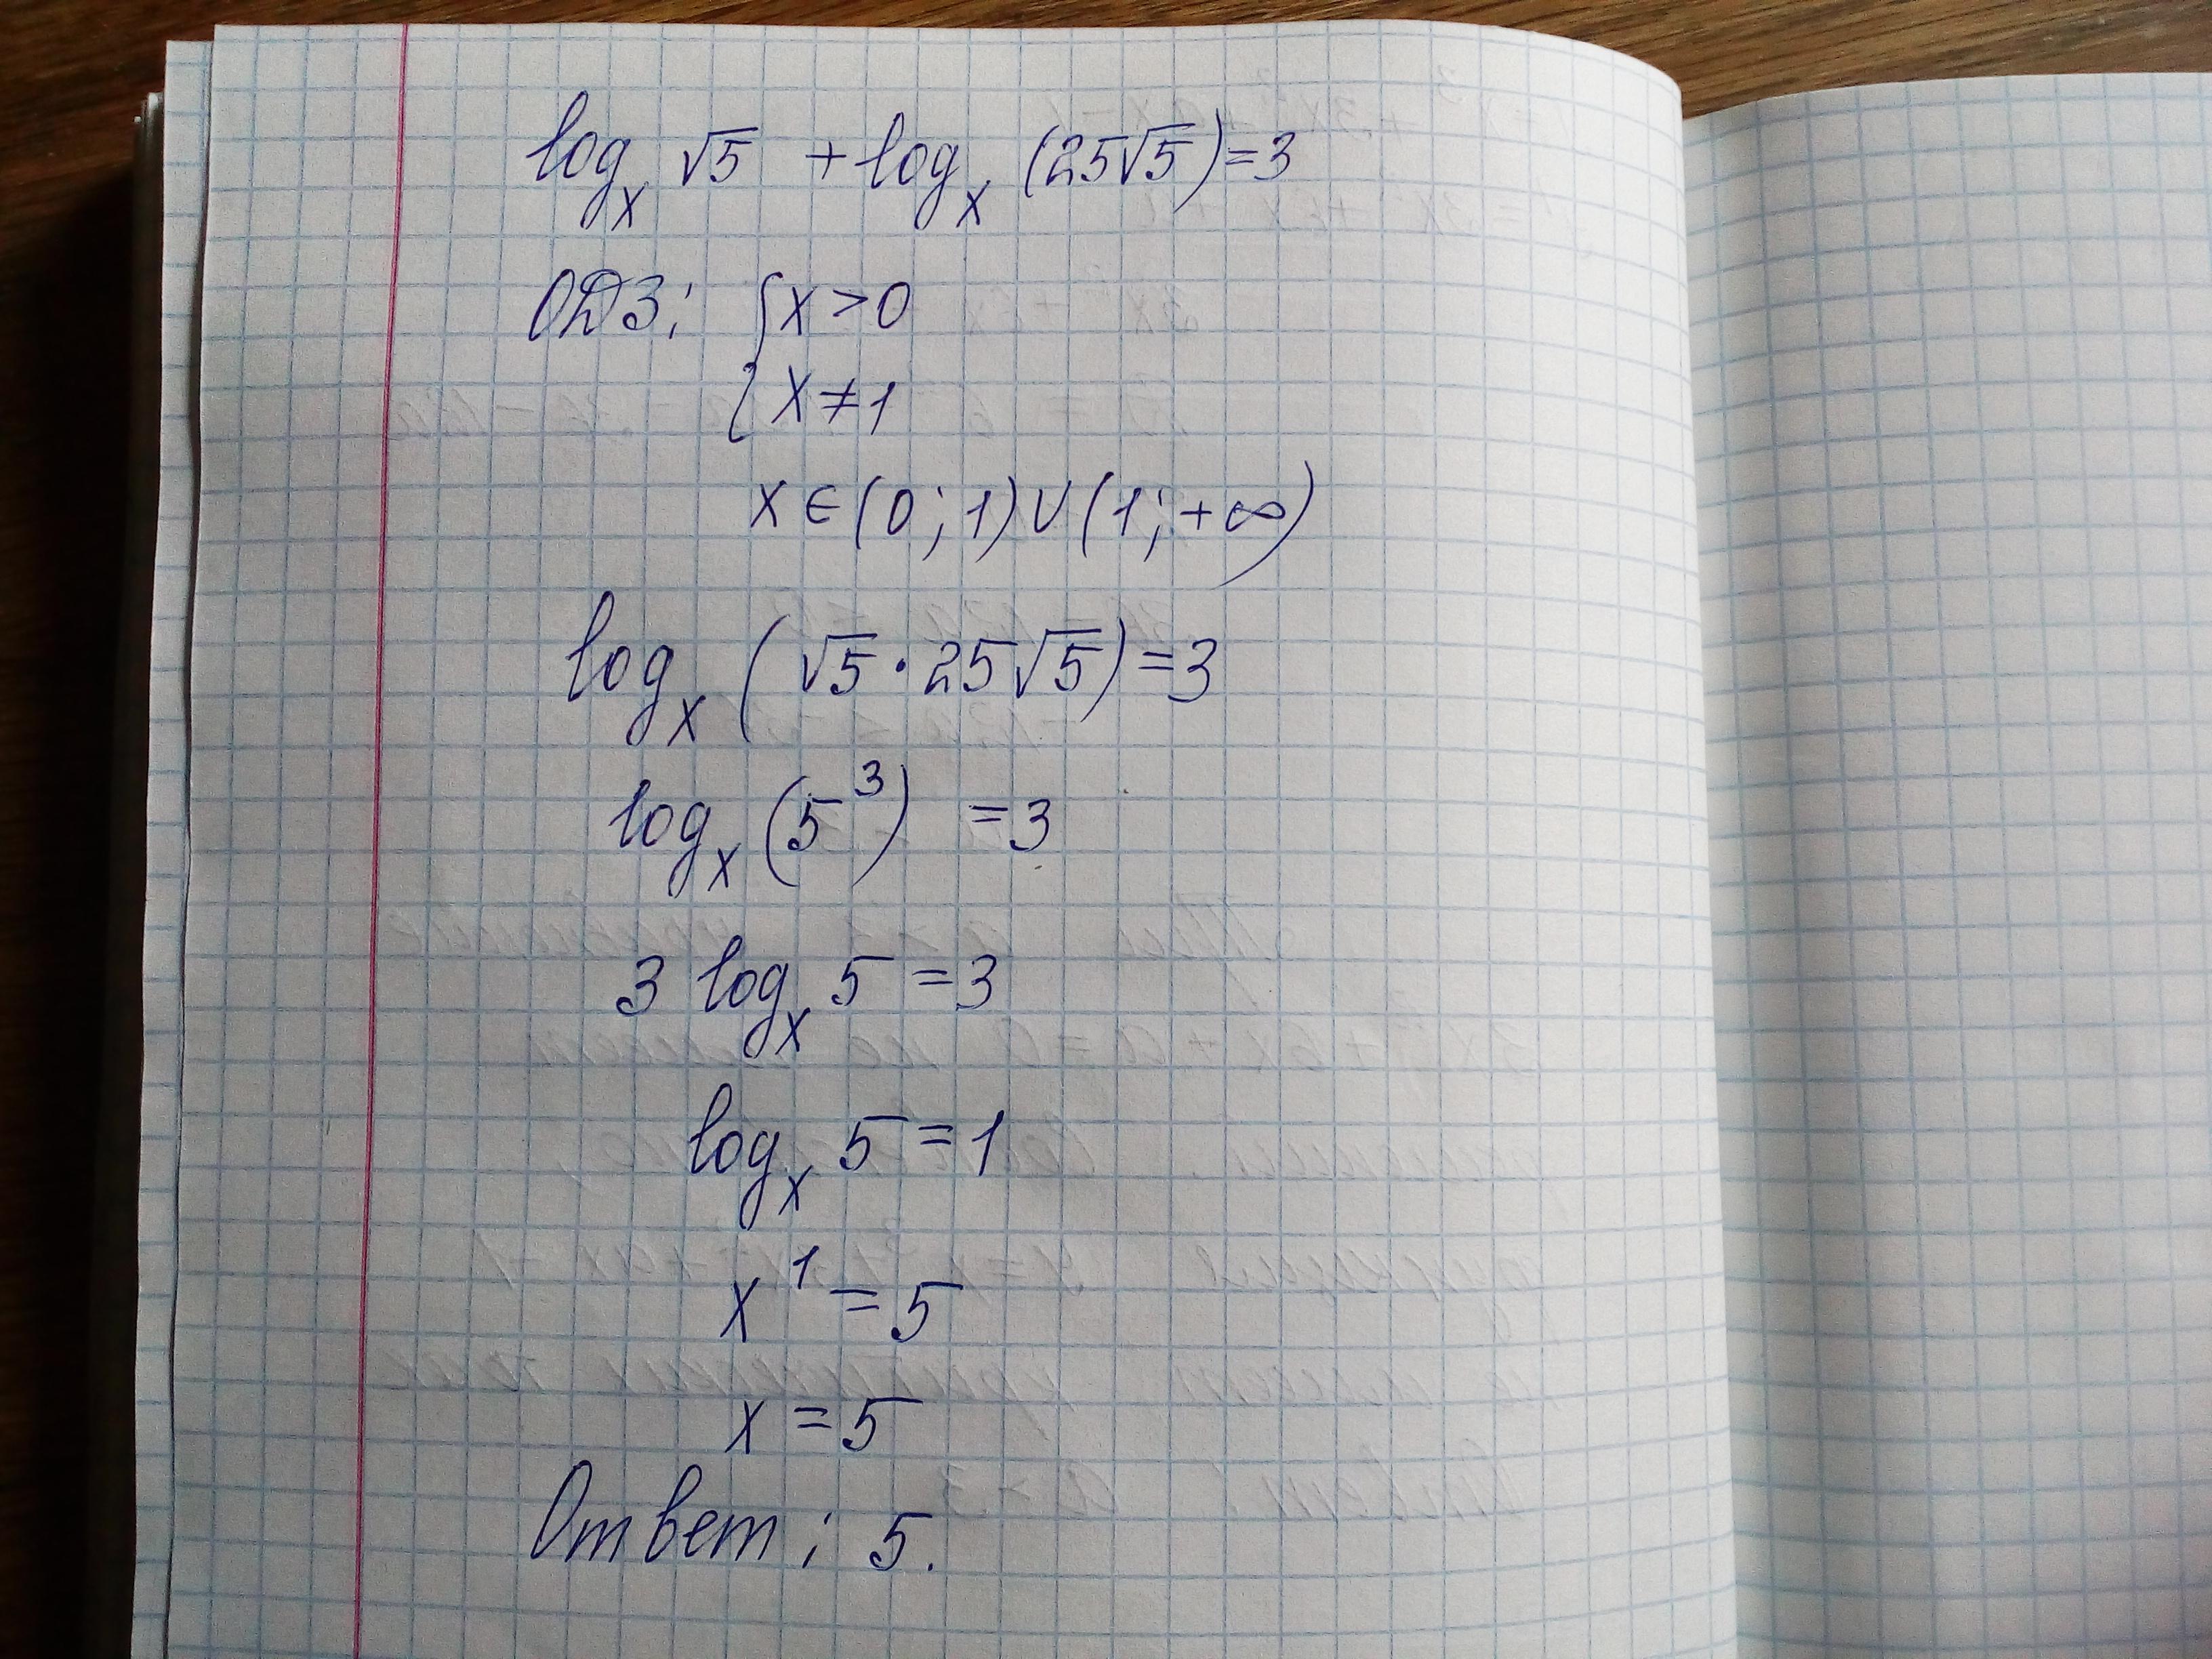 logₓ √5 + logₓ (25√5) = 3
ОДЗ: { x > 0
{ x ≠ 1
x ∈ (0; 1) ∪ (1; +∞)
logₓ (√5 · 25√5) = 3
logₓ (5³) = 3
3 logₓ 5 = 3
logₓ 5 = 1
x¹ = 5
x = 5
Ответ: 5.